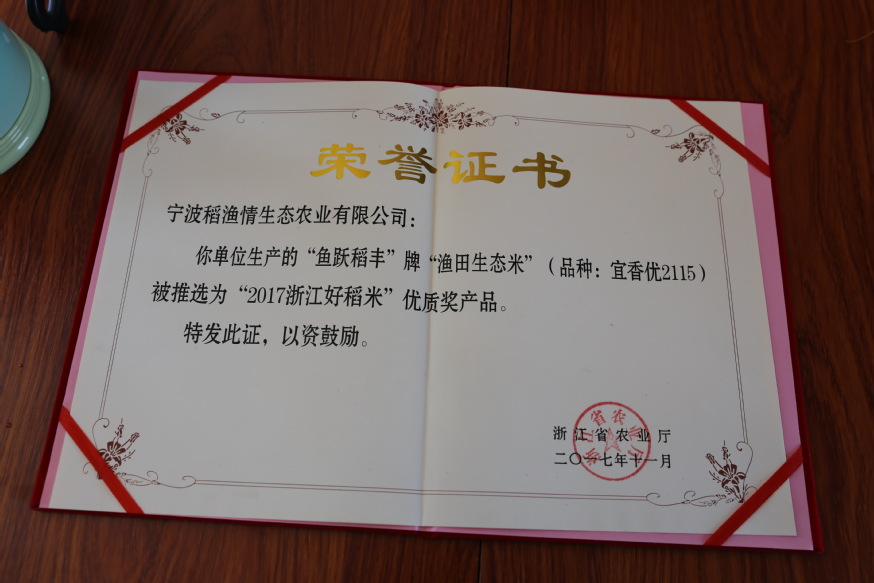 荣誉证书
宁波稻渔情生态农业有限公司：
你单位生产的“鱼跃稻丰”牌“渔田生态米”（品种：宜香优2115）
被推选为“2017浙江好稻米”优质奖产品。
特发此证，以资鼓励。
浙江省农业厅
二〇一七年十一月